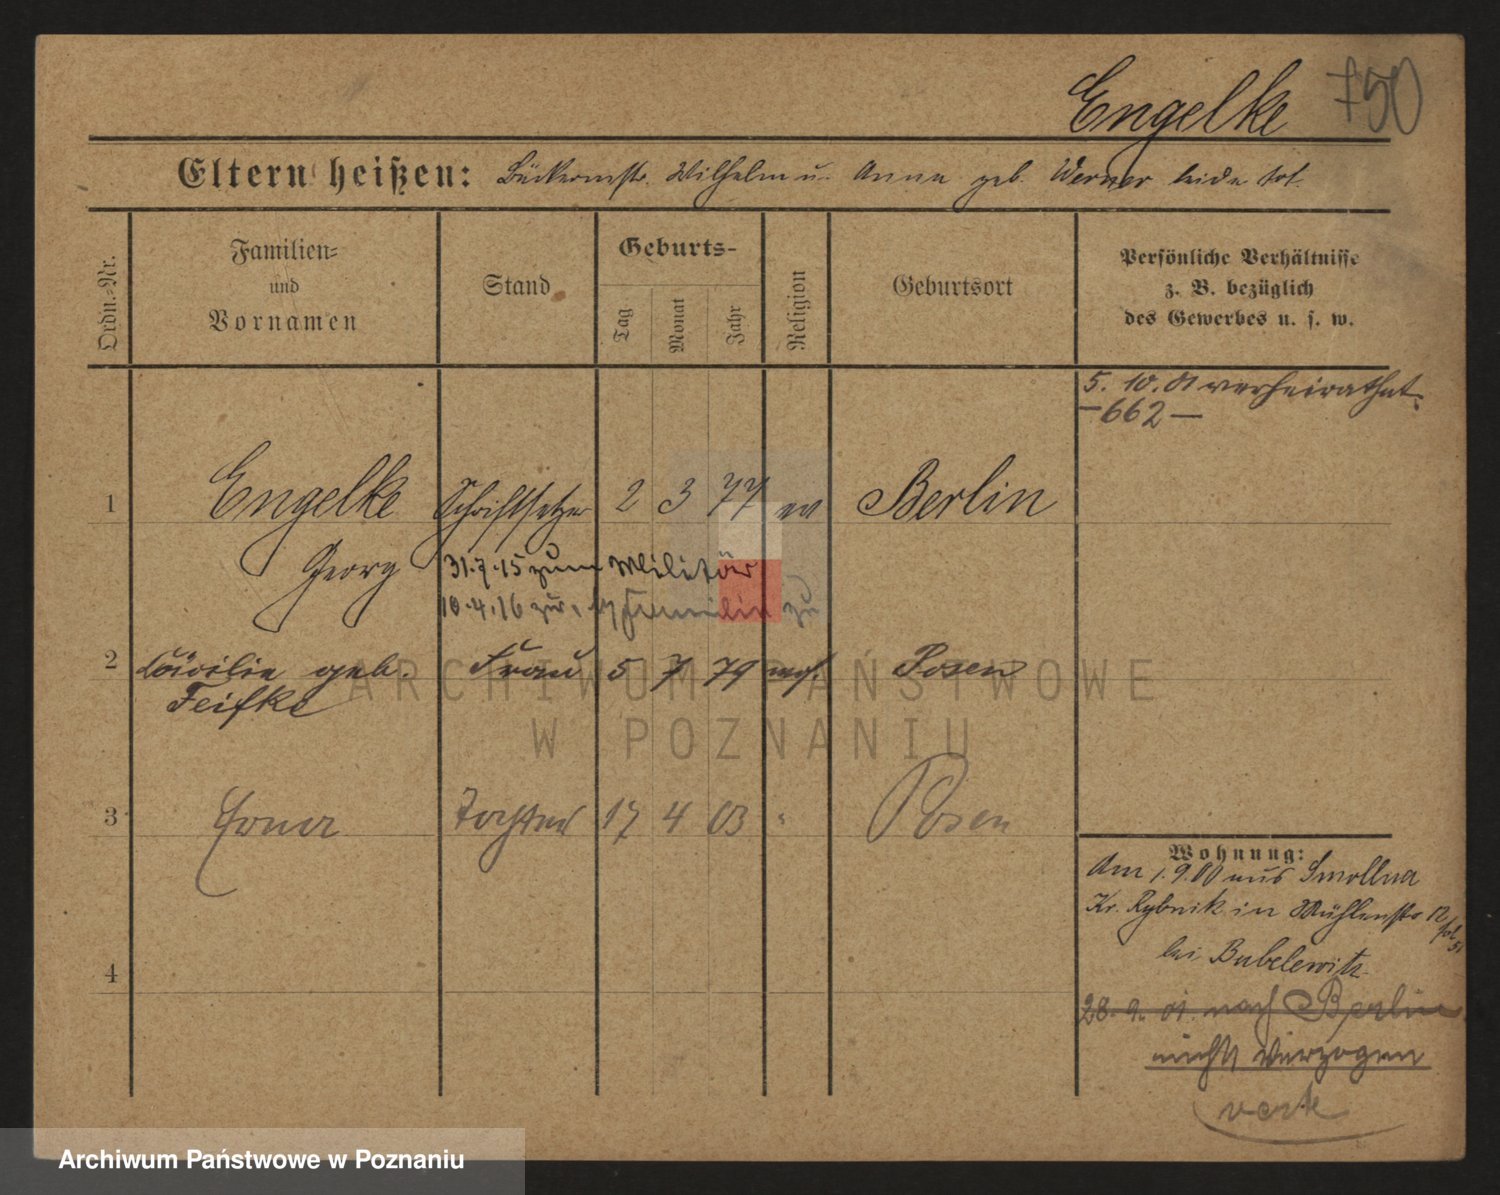 Engelke 750
Eltern heißen: Bäckermstr. Wilhelm u. Anna geb. Werner beide tot.
Ordn.-Nr.
Familien-
und
Vornamen
Stand
Geburts-
Tag
Monat
Jahr
Religion
Geburtsort
Persönliche Verhältnisse
z. B. bezüglich
des Gewerbes u. s. w.
5. 10. 01 verheirathet.
— 662 —
1 Engelke Schriftsetzer 2 3 77 ev Berlin
Georg
31.7.15 zum Militär
10.4.16 zur Familie zu
2 Cäcilie geb. Frau 5 7 79 Posen
Feifke
3 Erna Tochter 17 4 03 " Posen
4
Wohnung:
Am 1.9.00 aus Smollna
Kr. Rybnik in Mühlenstr 12
bei Bubelewitz
28. 9. 01. nach Berlin
nicht verzogen
verte
ARCHIWUM PAŃSTWOWE
W POZNANIU
Archiwum Państwowe w Poznaniu